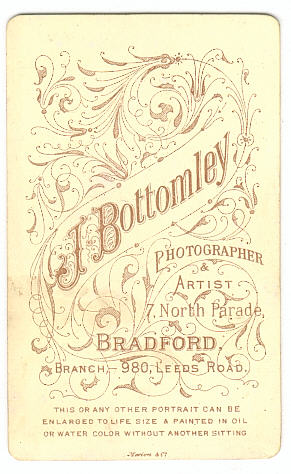 J. Bottomley
PHOTOGRAPHER
&
ARTIST
7, North Parade,
BRADFORD.
BRANCH,- 980, LEEDS ROAD.
THIS OR ANY OTHER PORTRAIT CAN BE
ENLARGED TO LIFE SIZE & PAINTED IN OIL
OR WATER COLOR WITHOUT ANOTHER SITTING
Marion & Co